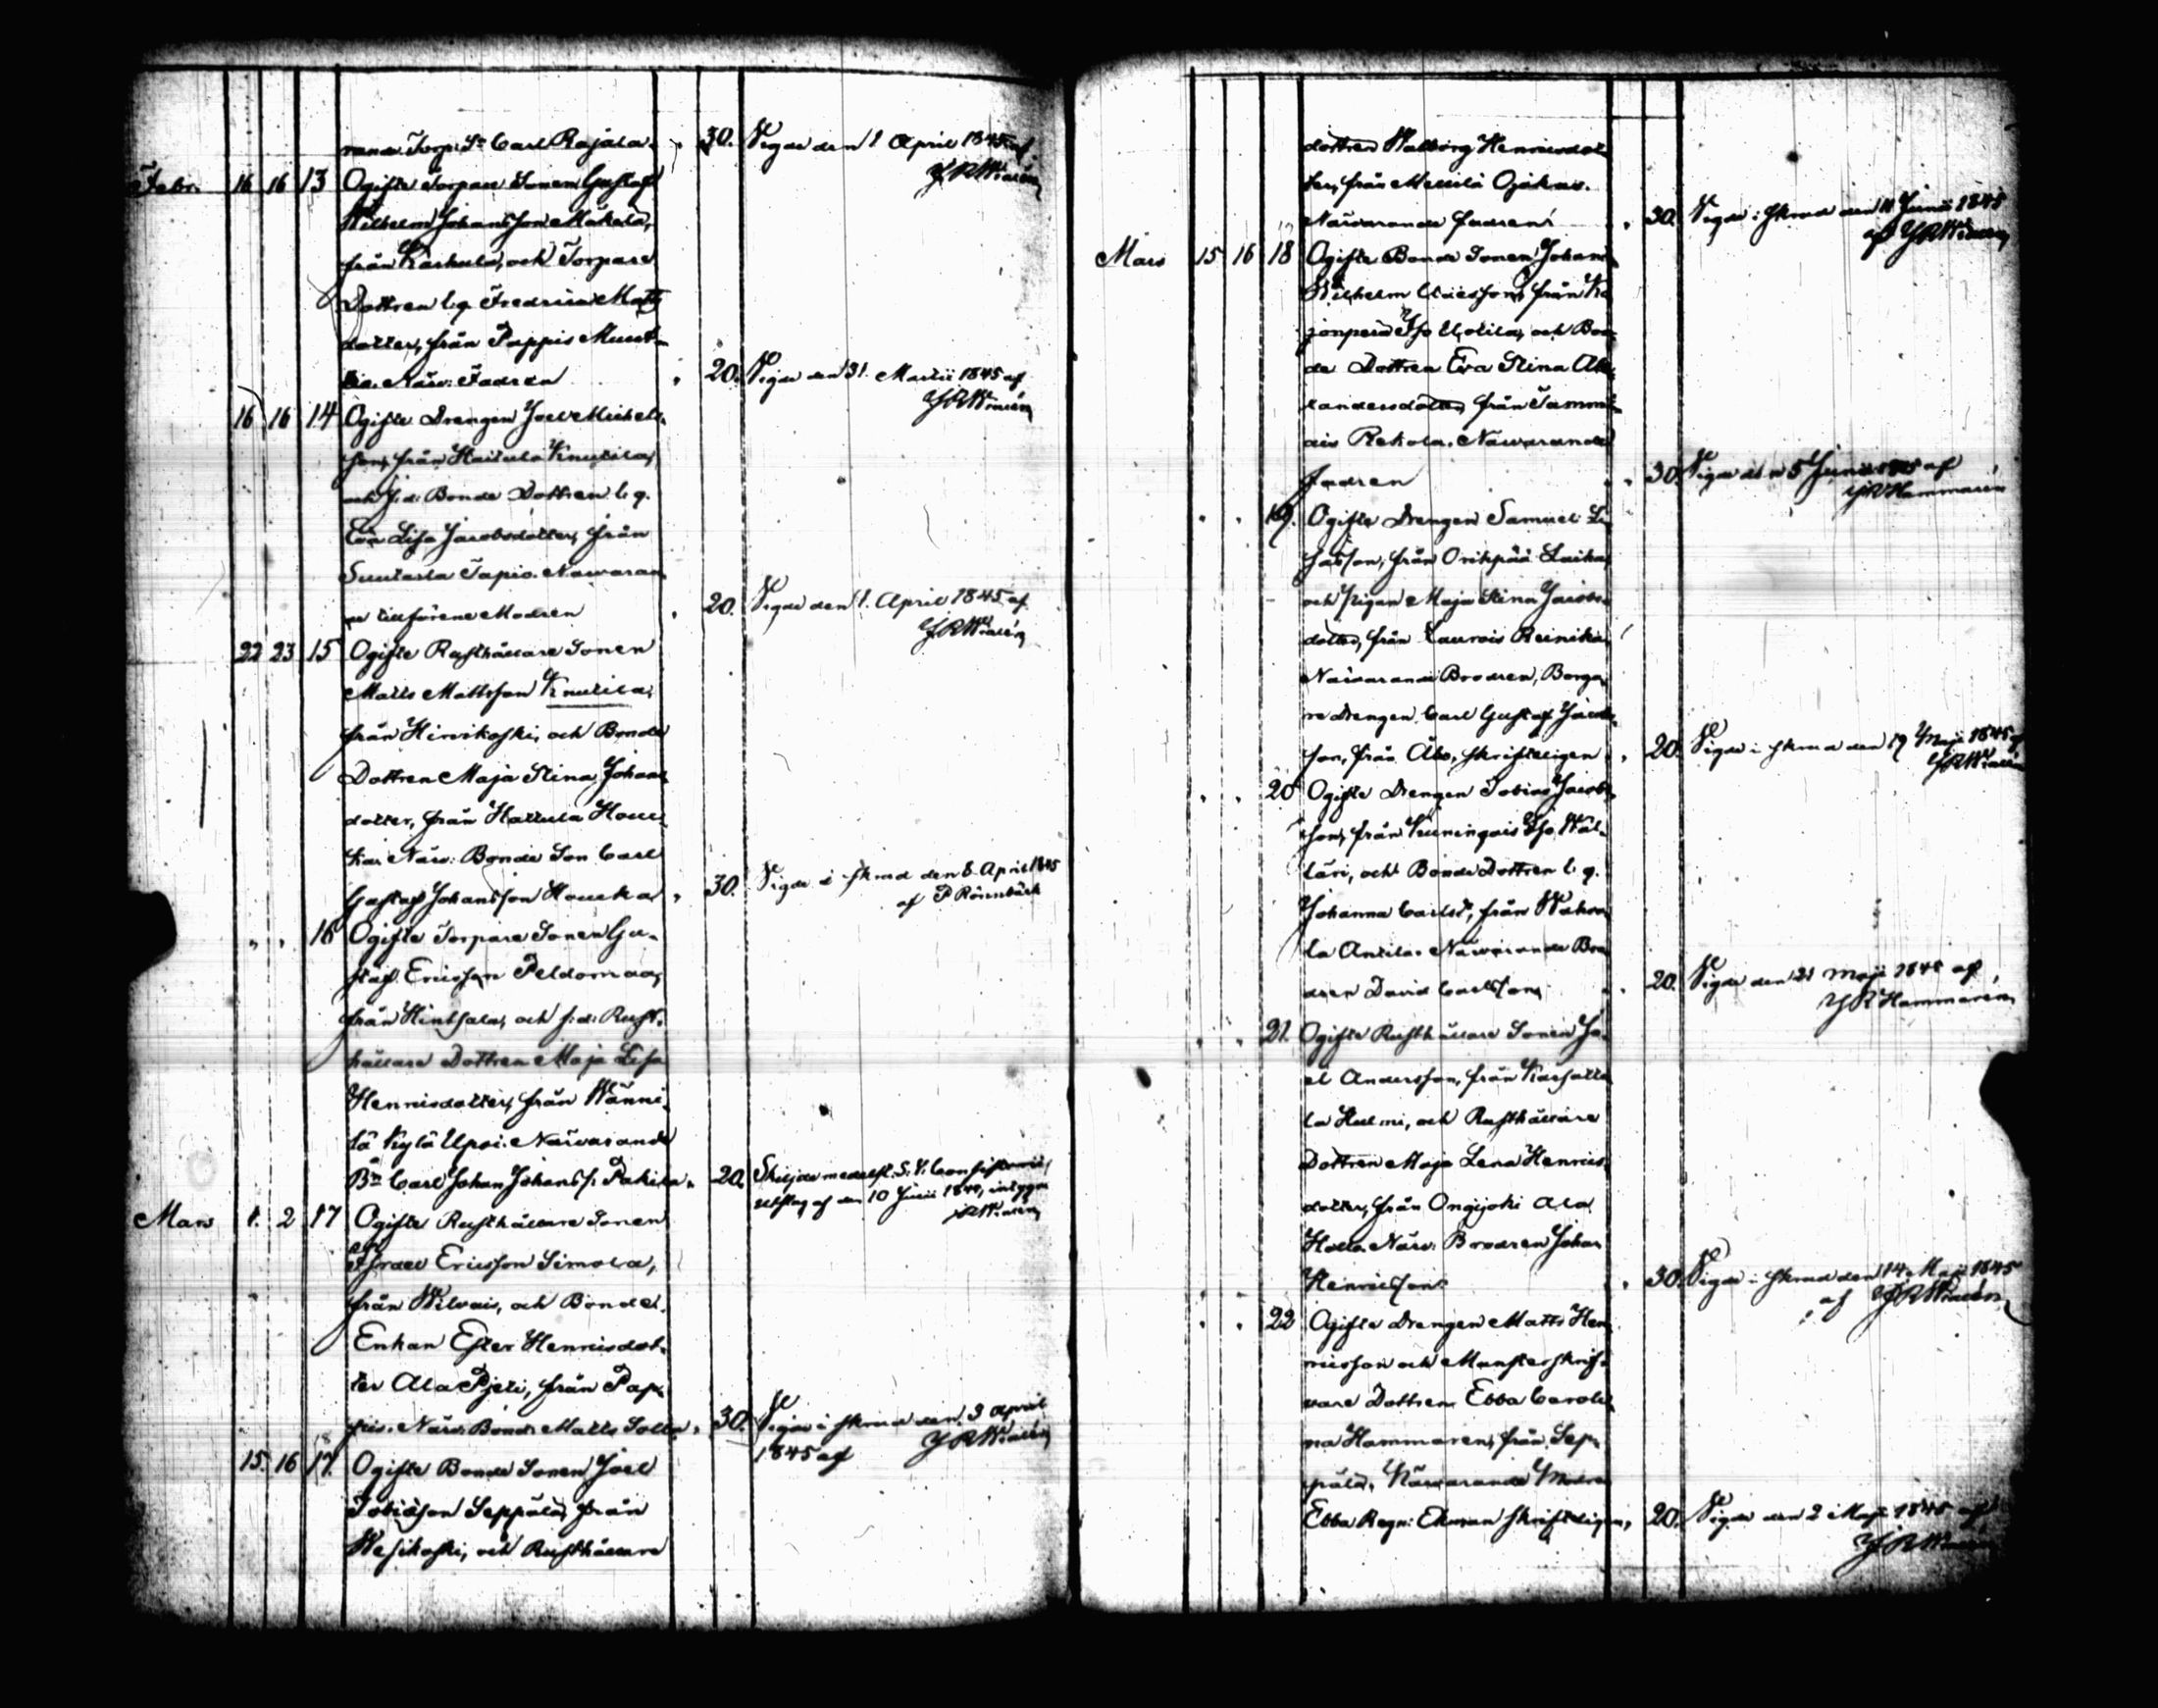 rande Torp: Sn Carl Rajala. " 30. Vigde den 1 April 1845 af
J R Wirzén
Febr. 16 16 13 Ogifte Torpare Sonen Gustaf
Wilhelm Johansson Mäkelä,
från Karhula, och Torpare
Dottren l. q. Fredrica Matts
dotter, från Pappis Munt-
tia. Närv: Fadren " 20. Vigde den 31 Martii 1845 af
16 16 14 Ogifte Drengen Joel Michels-
son, från Haitula Knutila,
och f.d. Bonde Dottren l. q.
Eva Lisa Jacobsdotter, från
Suutarla Tapio. Närvaran-
de tillförene Modren " 20. Vigde den 1. April 1845 af
22 23 15 Ogifte Rusthållare Sonen
Matts Mattsson Knutila,
från Hirvikoski, och Bonde
Dottren Maja Stina Johans
dotter, från Hattula Houc-
ka. Närv: Bonde Son Carl
Gustaf Johansson Houcka " 30. Vigde i fkrud den 8 April 1845
af P Rönnbäck
" " 16 Ogifte Torpare Sonen Gu-
staf Ericsson Peldomaa,
från Hintsala, och f:d: Rust-
hållare Dottren Maja Lisa
Henricsdotter, från Wänni-
lä Kylä Upsi. Närvarande
Bn Carl Johan Johanss: Pakila " 20. Skiljde medelst S. V. Consistorii
utslag af den 10 Junii
Mars 1. 2 17 Ogifte Rusthållare Sonen
Israel Ericsson Simola,
från Wilvais, och Bonde
Enkan Ester Henricsdot-
ter Ala Pjeti, från Pap-
pis. Närv: Bond: Matts Solla " 30. Vigde i fkrud den 3 April
1845 af
15. 16 17. Ogifte Bonde Sonen Joel
Tobiasson Seppälä, från
Wesikoski, och Rusthållare
dottren Walborg Henricsdot-
ter, från Mellilä Ojakas.
Närvarande fadren " 30. Vigde i fkrud den 11 Junii 1845
Mars 15 16 18 Ogifte Bonde Sonen Johan
Wilhelm från
Iso Uotila, och Bon-
de Dottren Eva Stina Alex-
andersdotter, från Tammi-
ais Rekola. Närvarande
fadren " 30 Vigde den 5 Junii 1845 af
J R Hammarén
" " 19. Ogifte Drengen Samuel
från Orihpää
och Pigan Maja Stina Jacobs-
dotter, från Laurois Reinika
Närvarande Brodren, Borga-
re drengen Carl Gustaf Jacobs-
son, från Åbo, skrifteligen " 20. Vigde i fkrud den 19 Maji 1845 af
" " 20 Ogifte Drengen Tobias Jacobs-
son, från Kuninqais Iso Wäl-
läri, och Bonde Dottren l. q.
Johanna Carlsd:, från
la Antila. Närvarande Bro-
dren David Carlsson " 20. Vigde den 21 Maji 1845 af
J R Hammarén
" " 21. Ogifte Rusthållare Sonen Jo-
el Andersson, från Karsatti-
la Hulmi, och Rusthållare
Dottren Maja Lena Henrics-
dotter, från Ongijoki Ala
Holla. Närv: Brodren Johan
Henricsson " 30. Vigde i fkrud den 14 Maji 1845
af
" " 22 Ogifte Drengen Matts Hen-
ricsson och Munsterskrif-
vare Dottren Ebba Caroli-
na Hammaren, från Sep-
pälä, Närvarande Modren
Ebba Regn: Ekman skrifteligen, 20. Vigde den 2 Maji 1845 af